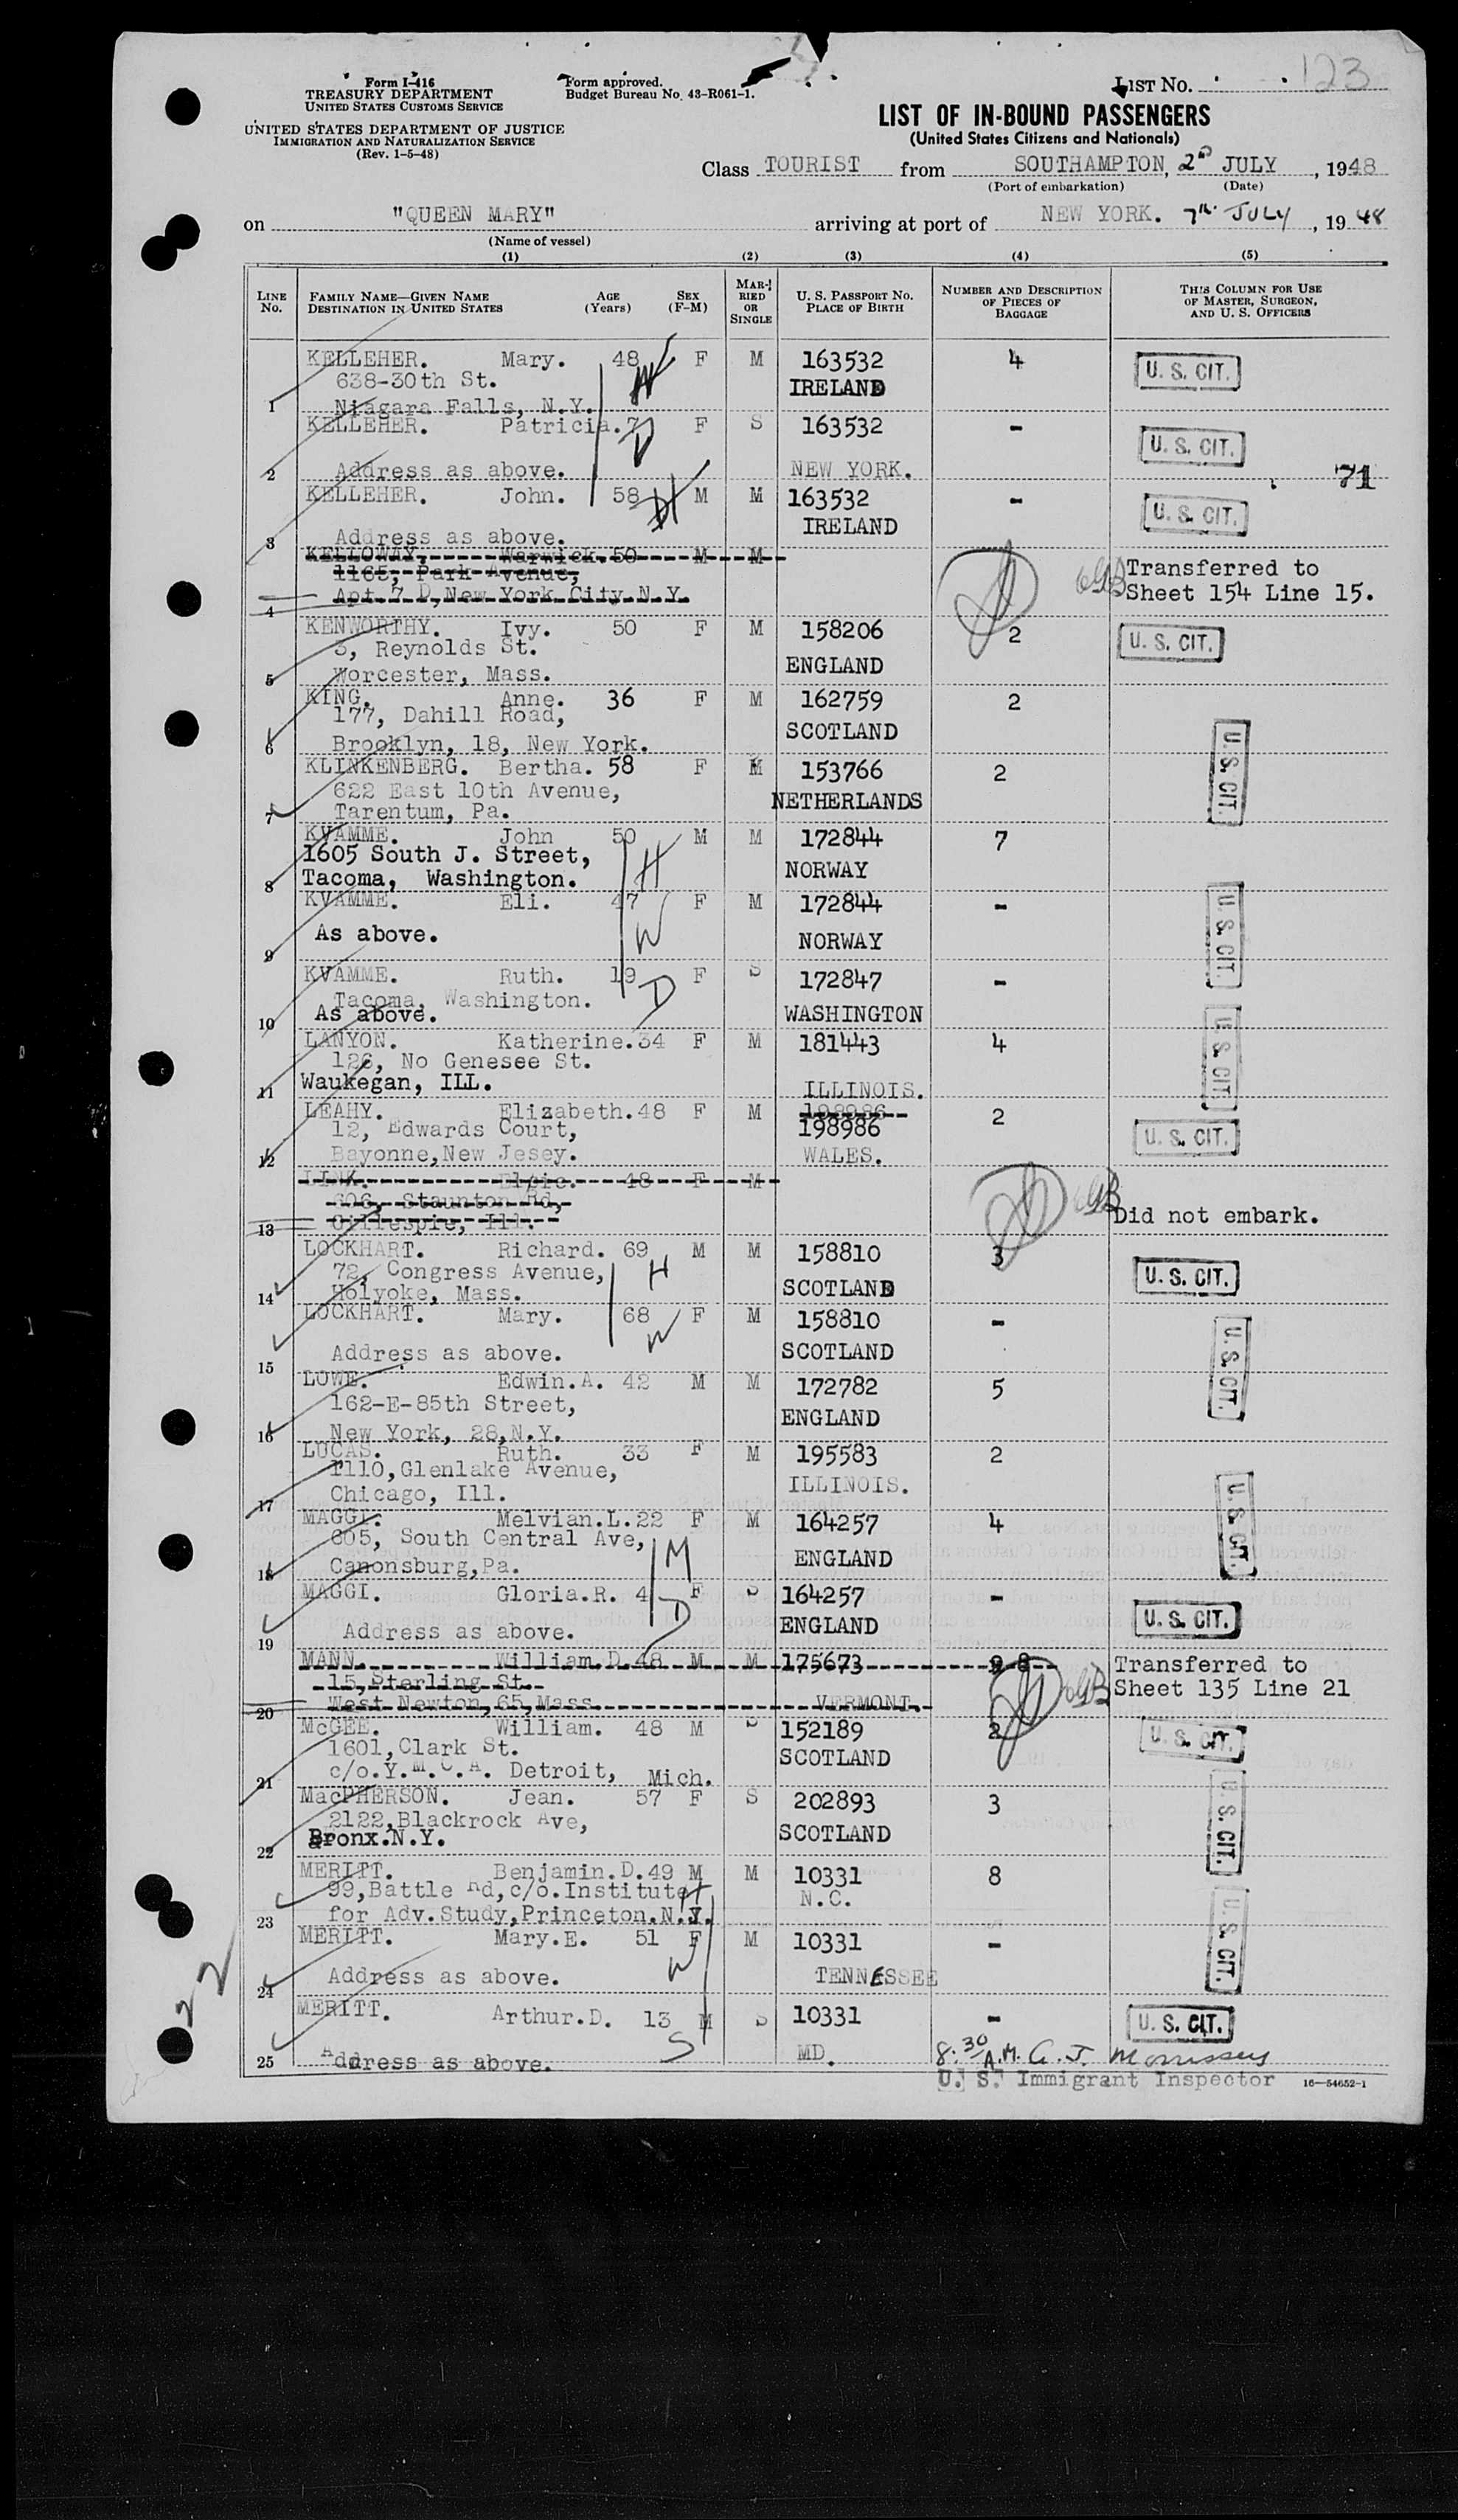 123
Form I-416
TREASURY DEPARTMENT
UNITED STATES CUSTOMS SERVICE
UNITED STATES DEPARTMENT OF JUSTICE
IMMIGRATION AND NATURALIZATION SERVICE
(Rev. 1-5-48)
Form approved.
Budget Bureau No. 43-R061-1.
LIST No.
LIST OF IN-BOUND PASSENGERS
(United States Citizens and Nationals)
Class TOURIST from SOUTHAMPTON, 2nd JULY, 1948
(Port of embarkation) (Date)
on "QUEEN MARY" arriving at port of NEW YORK. 7th JULY, 1948
(Name of vessel)
(1) (2) (3) (4) (5)
LINE No. FAMILY NAME—GIVEN NAME DESTINATION IN UNITED STATES AGE (Years) SEX (F-M) MARRIED OR SINGLE U. S. PASSPORT No. PLACE OF BIRTH NUMBER AND DESCRIPTION OF PIECES OF BAGGAGE THIS COLUMN FOR USE OF MASTER, SURGEON, AND U. S. OFFICERS
KELLEHER. Mary. 48 W F M 163532 4 U. S. CIT.
638-30th St. IRELAND
1 Niagara Falls, N.Y.
KELLEHER. Patricia. 7 D F S 163532 - U. S. CIT.
2 Address as above. NEW YORK. 71
KELLEHER. John. 58 H M M 163532 - U. S. CIT.
IRELAND
3 Address as above.
KELLOWAY. Warwick. 50 M M
1165, Park Avenue, Transferred to
4 Apt.7 D, New York City N.Y. Sheet 154 Line 15.
KENWORTHY. Ivy. 50 F M 158206 2 U. S. CIT.
5, Reynolds St. ENGLAND
5 Worcester, Mass.
KING. Anne. 36 F M 162759 2
177, Dahill Road, SCOTLAND
6 Brooklyn, 18, New York. U. S. CIT.
KLINKENBERG. Bertha. 58 F M 153766 2
622 East 10th Avenue, NETHERLANDS
7 Tarentum, Pa.
KVAMME. John 50 H M M 172844 7
1605 South J. Street, NORWAY
8 Tacoma, Washington.
KVAMME. Eli. 47 W F M 172844 - U. S. CIT.
9 As above. NORWAY
KVAMME. Ruth. 19 D F S 172847 -
Tacoma, Washington.
10 As above. WASHINGTON
LANYON. Katherine. 34 F M 181443 4 U. S. CIT.
126, No Genesee St.
11 Waukegan, ILL. ILLINOIS.
LEAHY. Elizabeth. 48 F M 198986 2
12, Edwards Court, 198986 U. S. CIT.
12 Bayonne, New Jesey. WALES.
LINK. Elsie. 48 F M
606, Staunton Rd,
13 Gillespie, Ill. Did not embark.
LOCKHART. Richard. 69 H M M 158810 3 U. S. CIT.
72, Congress Avenue, SCOTLAND
14 Holyoke, Mass.
LOCKHART. Mary. 68 W F M 158810 -
15 Address as above. SCOTLAND U. S. CIT.
LOWE. Edwin.A. 42 M M 172782 5
162-E-85th Street, ENGLAND
16 New York, 28,N.Y.
LUCAS. Ruth. 33 F M 195583 2
1110,Glenlake Avenue, ILLINOIS.
17 Chicago, Ill. U. S. CIT.
MAGGI. Melvian.L. 22 M F M 164257 4
605, South Central Ave, ENGLAND
18 Canonsburg,Pa.
MAGGI. Gloria.R. 4 D F S 164257 - U. S. CIT.
19 Address as above. ENGLAND
MANN. William.D. 48 M M 175673 9 8 Transferred to
15,Sterling St. Sheet 135 Line 21
20 West Newton,65,Mass VERMONT.
McGEE. William. 48 M S 152189 2 U. S. CIT.
1601,Clark St. SCOTLAND
21 c/o.Y.M.C.A. Detroit, Mich.
MacPHERSON. Jean. 57 F S 202893 3 U. S. CIT.
2122,Blackrock Ave, SCOTLAND
22 Bronx.N.Y.
MERITT. Benjamin.D. 49 M M 10331 8
99,Battle Rd,c/o.Institute H N.C.
23 for Adv.Study,Princeton.N.J.
MERITT. Mary.E. 51 F M 10331 - U. S. CIT.
24 Address as above. W TENNESSEE
MERITT. Arthur.D. 13 M S 10331 - U. S. CIT.
25 Address as above. S MD.
8:30 A.M. G. J. Morrissey
U. S. Immigrant Inspector 16—54652-1
22